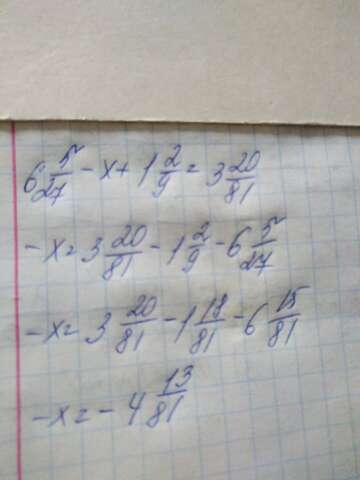 6 5/27 - x + 1 2/9 = 3 20/81
- x = 3 20/81 - 1 2/9 - 6 5/27
- x = 3 20/81 - 1 18/81 - 6 15/81
- x = - 4 13/81